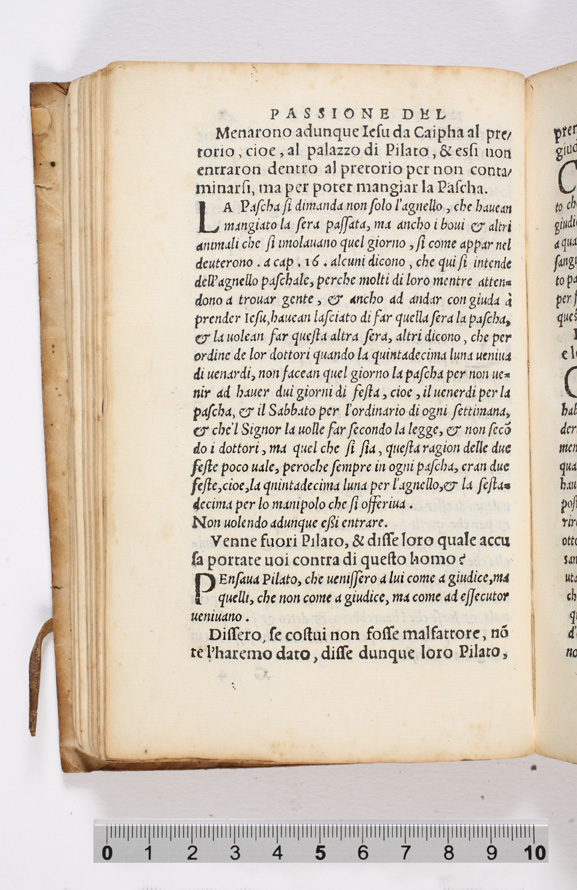 PASSIONE DEL
Menarono adunque Iesu da Caipha al pre/
torio, cioe, al palazzo di Pilato, & essi non
entraron dentro al pretorio per non conta/
minarsi, ma per poter mangiar la Pascha.
LA Pascha si dimanda non solo l'agnello, che hauean
mangiato la sera passata, ma ancho i boui & altri
animali che si imolauano quel giorno, si come appar nel
deuterono. a cap. 16. alcuni dicono, che qui si intende
dell'agnello paschale, perche molti di loro mentre atten=
dono a trouar gente, & ancho ad andar con giuda à
prender Iesu, hauean lasciato di far quella sera la pascha,
& la uolean far questa altra sera, altri dicono, che per
ordine de lor dottori quando la quintadecima luna ueniua
di uenardi, non facean quel giorno la pascha per non ue=
nir ad hauer dui giorni di festa, cioe, il uenerdi per la
pascha, & il Sabbato per l'ordinario di ogni settimana,
& che'l Signor la uolle far secondo la legge, & non secō
do i dottori, ma quel che si sia, questa ragion delle due
feste poco uale, peroche sempre in ogni pascha, eran due
feste, cioe, la qnintadecima luna per l'agnello, & la sesta=
decima per lo manipolo che si offeriua.
Non uolendo adunque eßi entrare.
Venne fuori Pilato, & disse loro quale accu
sa portate uoi contra di questo homo?
PEnsaua Pilato, che uenissero a lui come a giudice, ma
quelli, che non come a giudice, ma come ad essecutor
ueniuano.
Dissero, se costui non fosse malfattore, nō
te l'haremo dato, disse dunque loro Pilato,
pren
giud
C
to ch
giudi
a qua
sangu
to pa
per s
ques
e l
C
hab
der
men
qua
hau
pos
rire
otto
san
uta
ch
q
d'
no
0 1 2 3 4 5 6 7 8 9 10